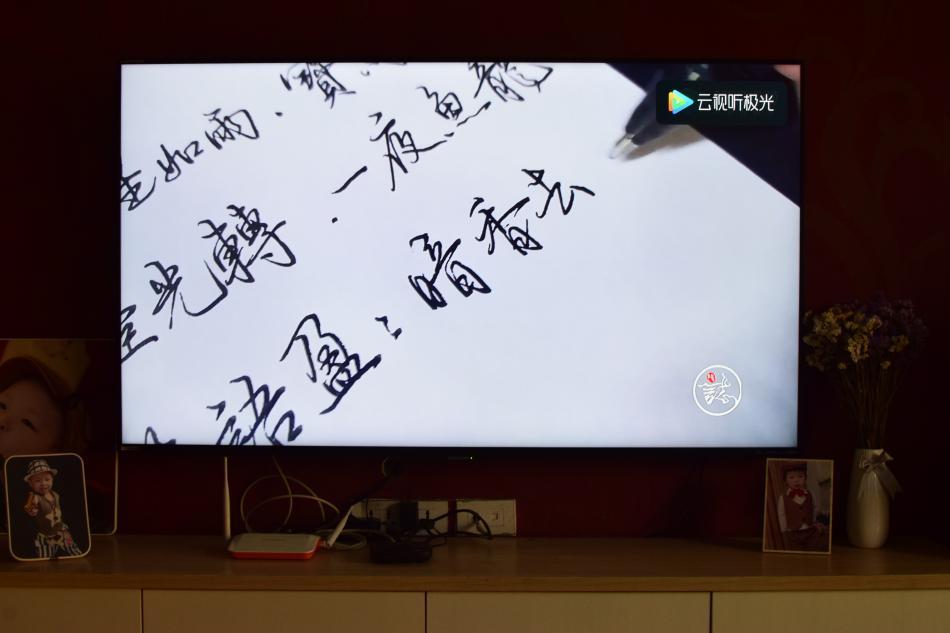 云视听极光
星如雨·寶
光轉·一夜魚龍
語盈盈暗香去